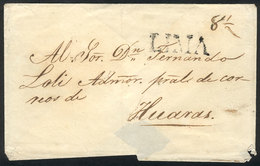 8 rs
LIMA
Al Sor. Dn. Fernando
Loli Admor. pral de cor
reos de
Huaras.